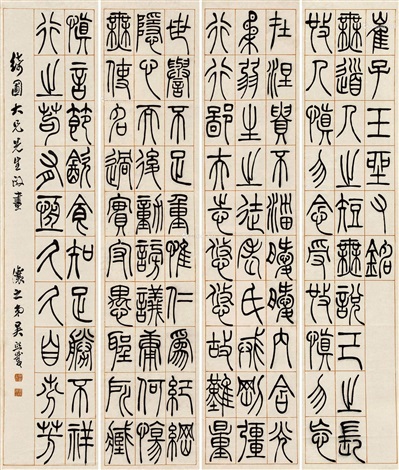 崔子玉坐右銘
無道人之短無說己之長
施人慎勿念受施慎勿忘
在涅貴不淄曖曖內含光
柔弱生之徒老氏戒剛彊
行行鄙夫志悠悠故難量
世譽不足慕惟仁為紀綱
隱心而後動謗議庸何傷
無使名過實守愚聖所臧
慎言節飲食知足勝不祥
行之苟有恆久久自芬芳
綺園大兄先生政書 讓之弟吳熙載